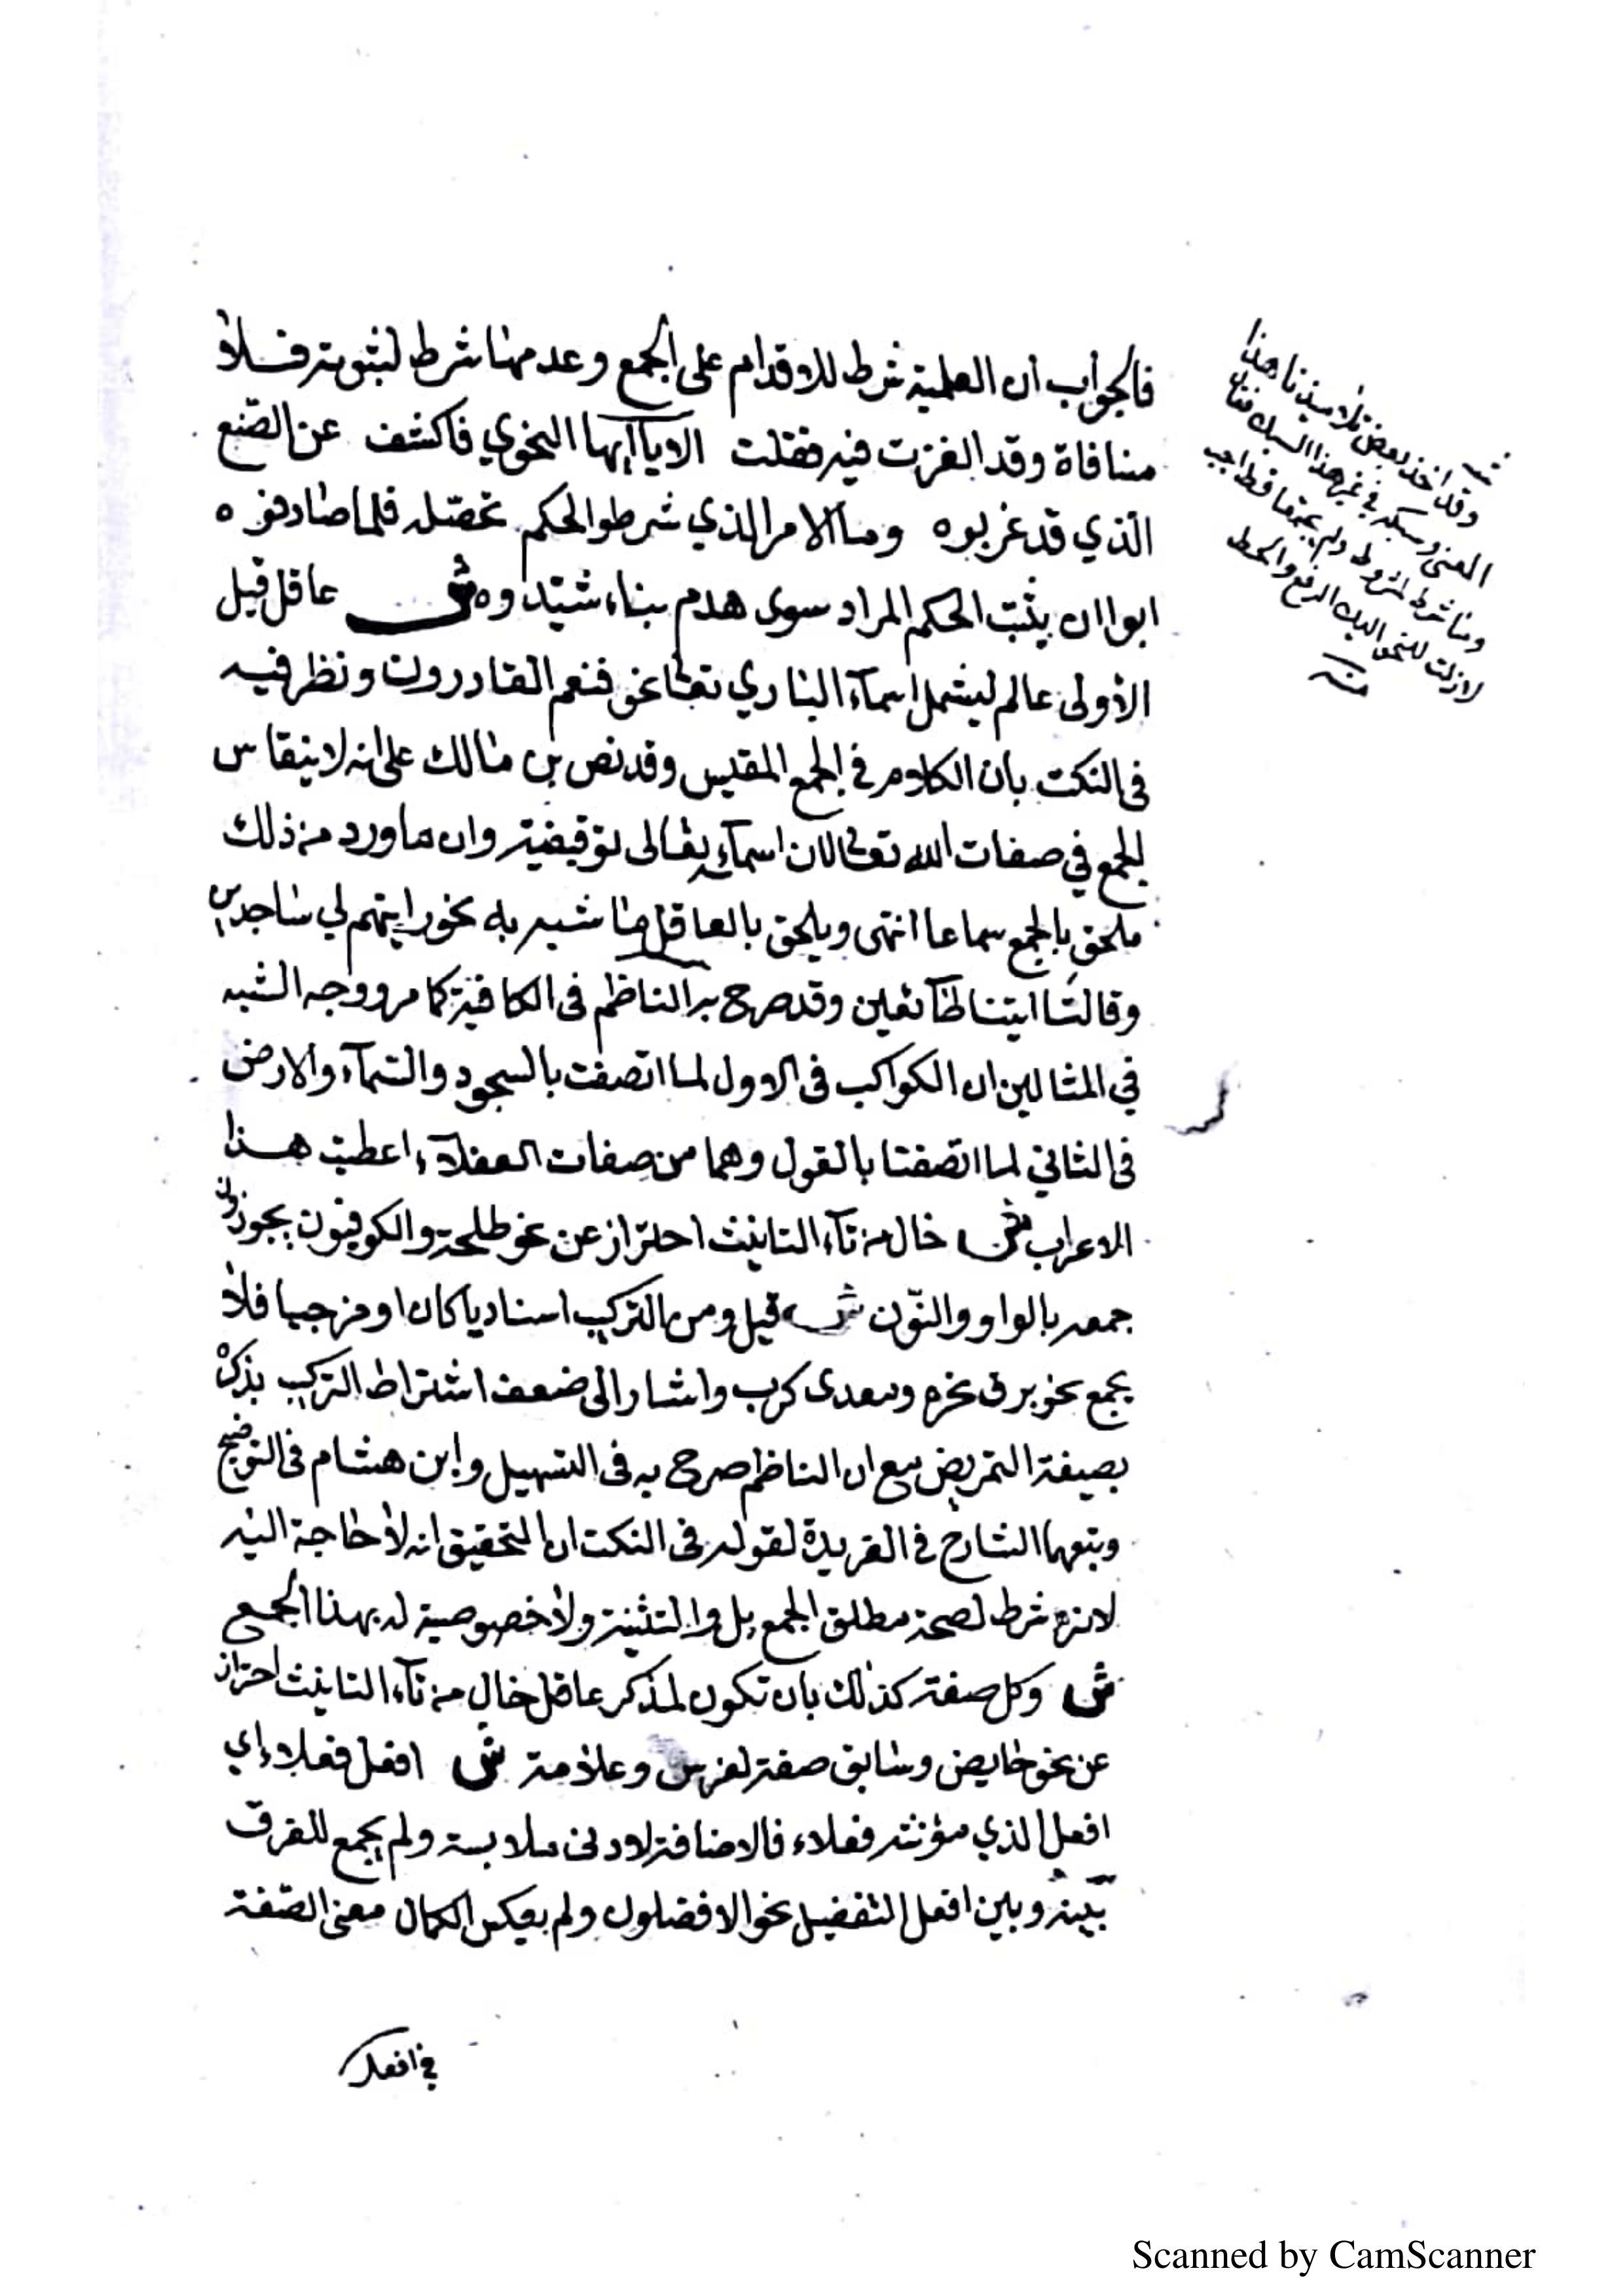 فالجواب ان العلمية شرط للاقدام على الجمع وعدمها شرط لثبوته فلا
منافاة وقد الغزت فيه فقلت الا يا ايها النحوي فاكشف عن الصنع
الذي قد غربوه وما الامر الذي شرطوا لحكم تحصّله فلما صادفوه
ابوا ان يثبت الحكم المراد سوى هدم بناء شيّدوه ش عاقل قيل
الأولى عالم ليشمل اسماء الباري تعالى نحو فنعم القادرون ونظر فيه
في النكت بان الكلام في الجمع المقيس وقد نص بن مالك على انه لا ينقاس
الجمع في صفات الله تعالى لان اسمآءه تعالى توقيفية وان ما ورد من ذلك
ملحق بالجمع سماعا انتهى ويلحق بالعاقل ما شبه به نحو رايتهم لي ساجدين
وقالتا اتينا طآئعين وقد صرح به الناظم في الكافية كما مر ووجه الشبه
في المثالين ان الكواكب في الاول لما اتصفت بالسجود والسمآء والارض
في الثاني لما اتصفتا بالقول وهما من صفات العقلآء اعطيت هذا
الاعراب ش خال من تآء التانيث احتراز عن نحو طلحة والكوفيون يجوزون
جمعه بالواو والنّون ش قيل ومن التركيب اسناديا كان او مزجيا فلا
يجمع نحو برق نحره ومعدى كرب واشار الى ضعف اشتراط التركيب بذكره
بصيغة التمريض مع ان الناظم صرح به في التسهيل وابن هشام في التوضيح
وتبعهما الشارح في الفريدة لقوله في النكت ان التحقيق انه لا حاجة اليه
لانه شرط لصحة مطلق الجمع بل والتثنية ولا خصوصية له بهذا الجمع
ش وكل صفة كذلك بان تكون لمذكر عاقل خال من تآء التانيث احتراز
عن نحو حايض وسابق صفة لفرس وعلامة ش افعل فعلاء اي
افعل الذي مؤنثه فعلاء فالاضافة لادنى ملابسة ولم يجمع للفرق
بينه وبين افعل التفضيل نحو الافضلون ولم يعكس لكمال معنى الصّفة
في افعل
وقد اخذ بعض تلاميذنا هذا
المعنى وسبكه في غير هذا السبك فقال
وما شرط لمشروط ولم يجمعا قط اجب
لا زلت للنحو اليك الرفع والحط
منه
Scanned by CamScanner